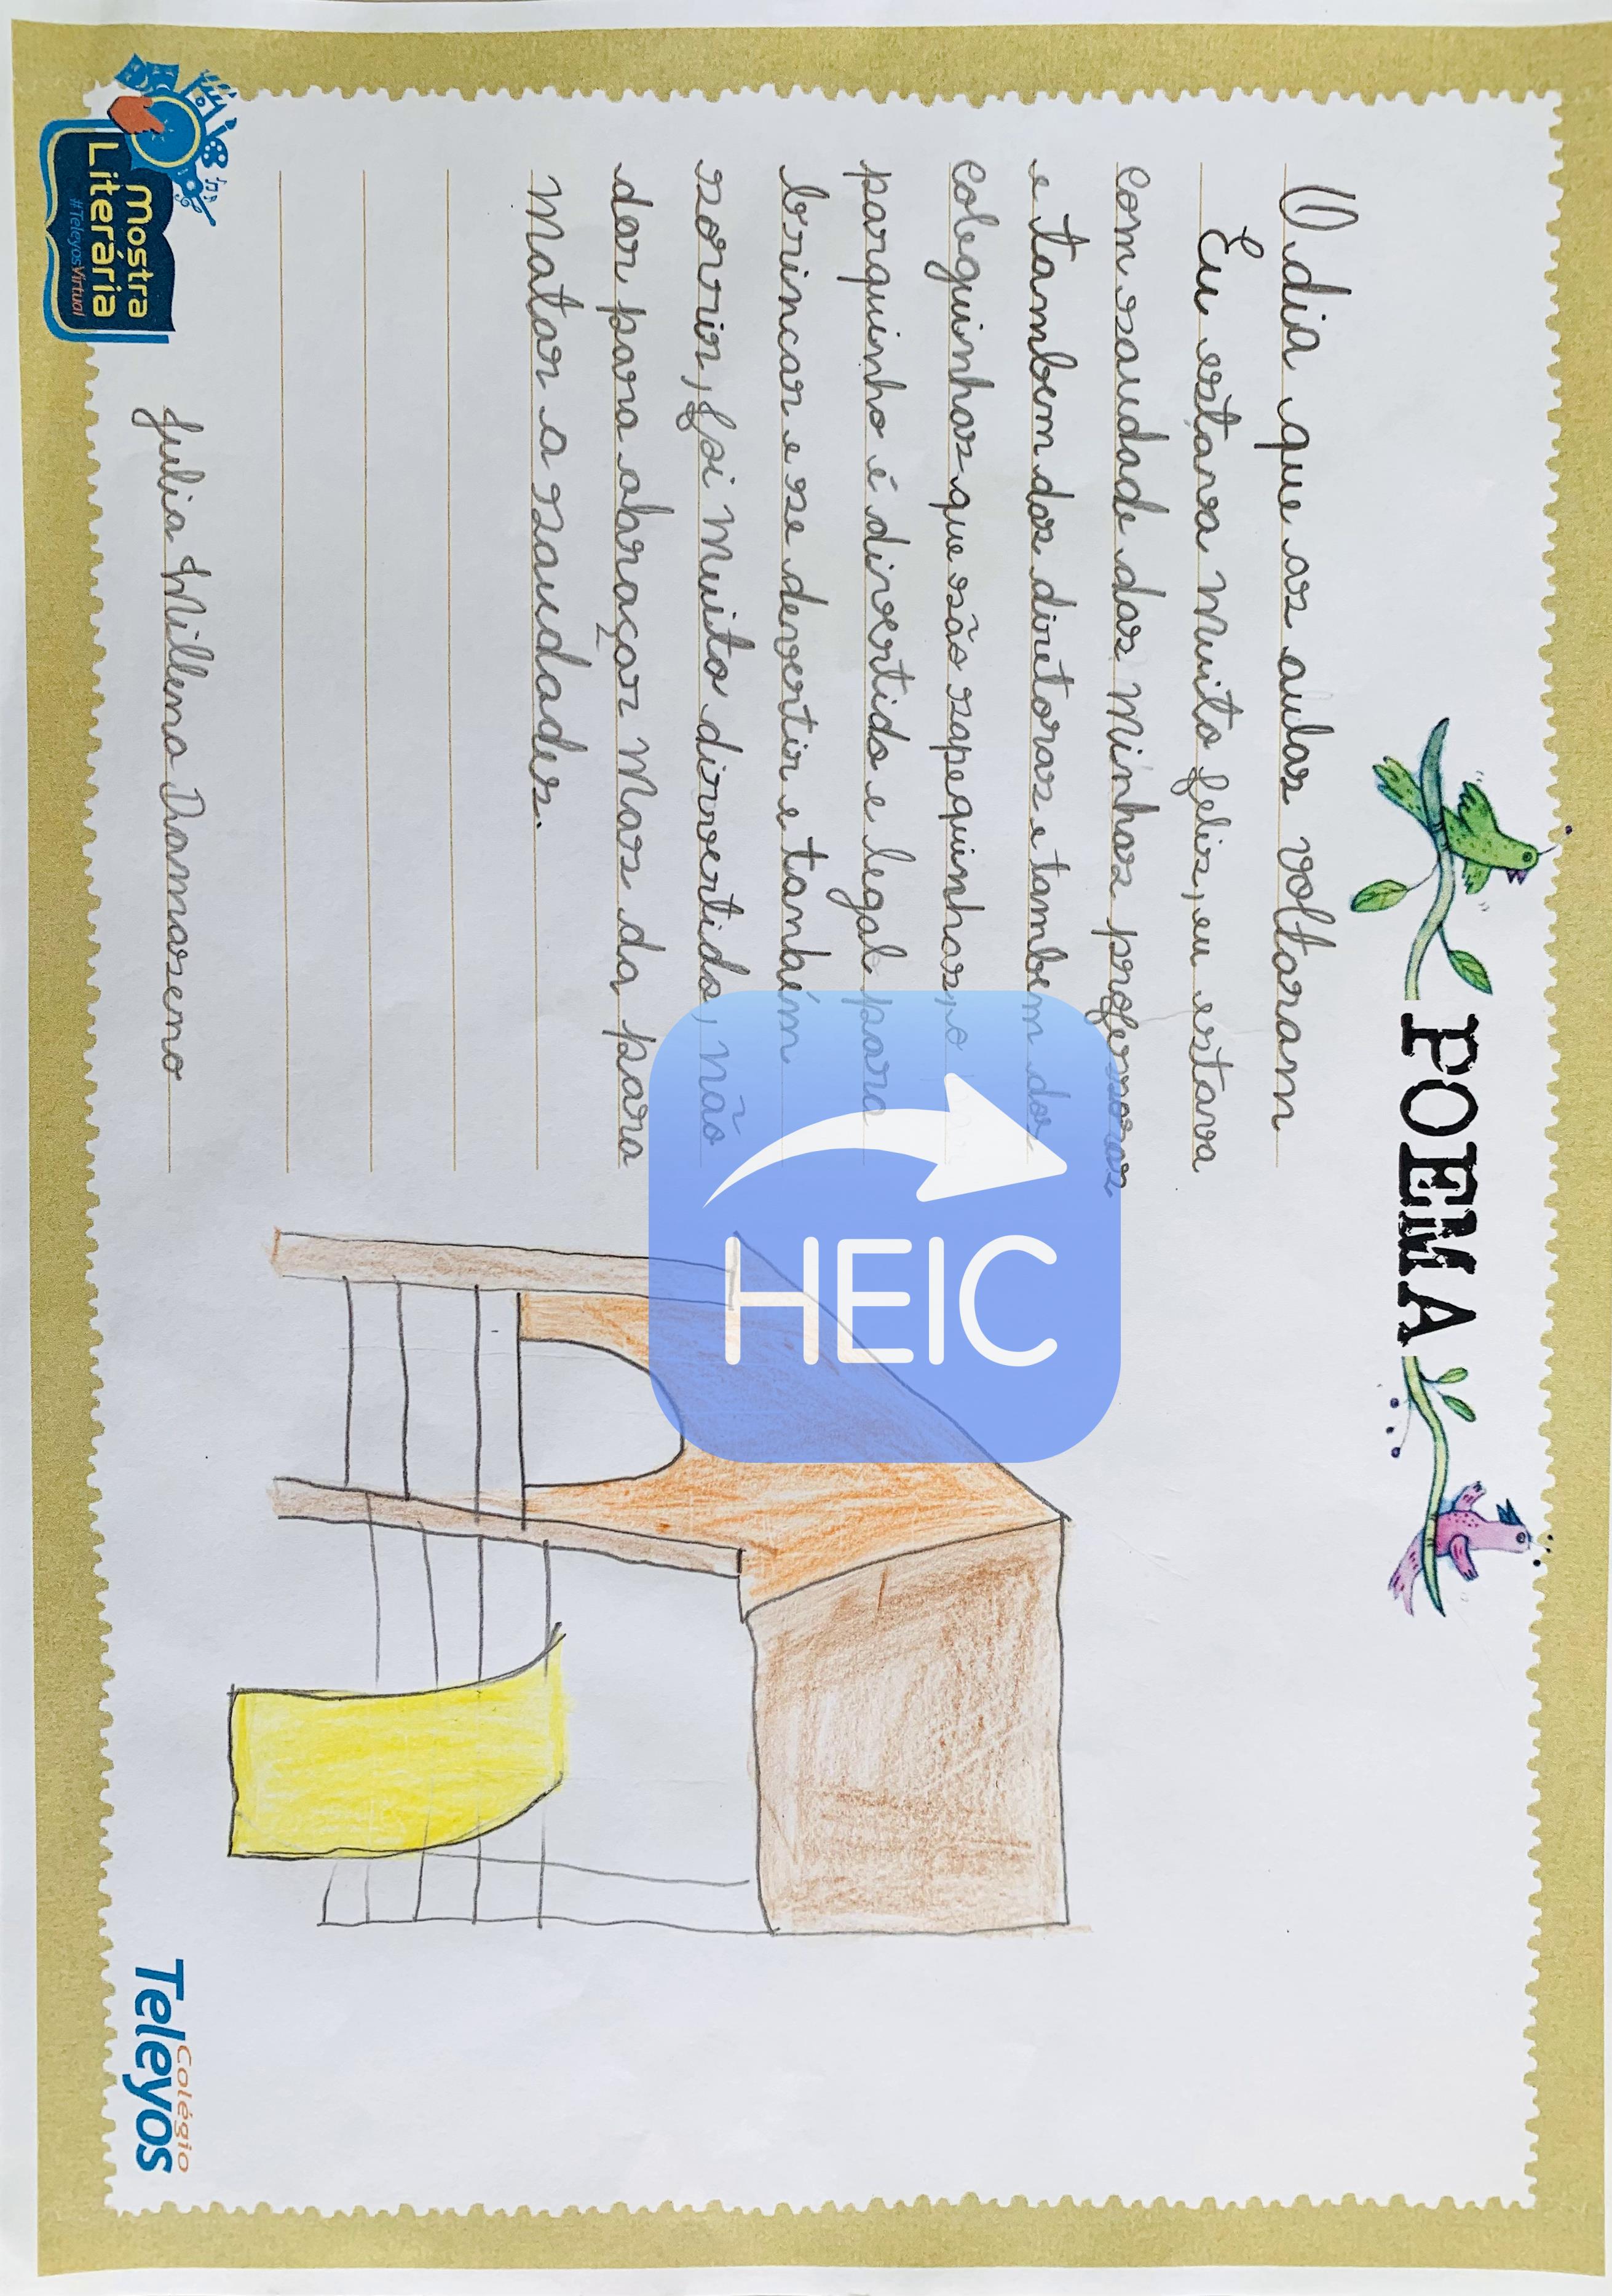 POEMA
O dia que as aulas voltaram
Eu estava muito feliz, eu estava
com saudade das minhas professoras
e tambem das diretoras e tambem dos
coleguinhas que são sapequinhas, o
parquinho é divertido e legal para
brincar e se devertir e tanbém
sorrir, foi muito divertido, não
dar para abraçar mas da para
matar a saudades.
Julia Millena Damasceno
Mostra
Literária
#TeleyosVirtual
Colégio
Teleyos
HEIC